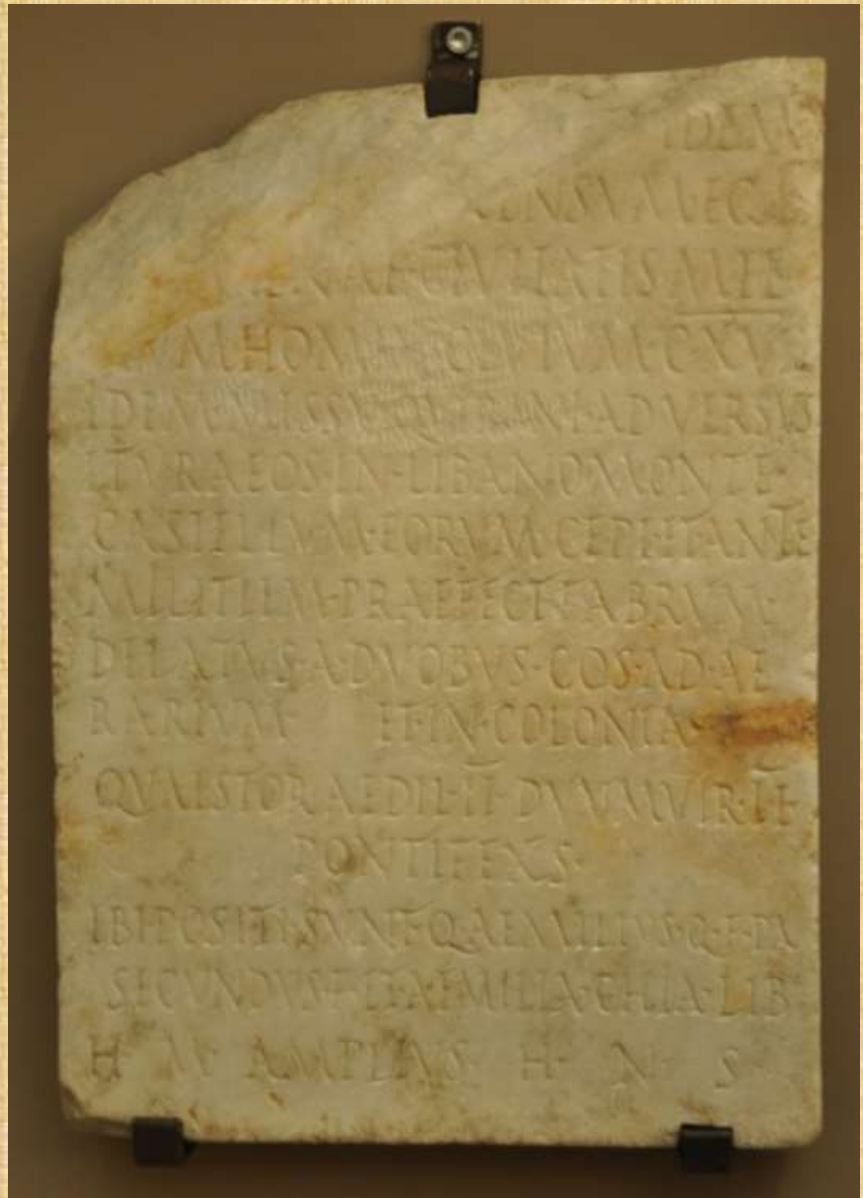 IDEM
CENSVM·EGI
MENAE·CIVITATIS MIL
VM HOMIN·CIVIVM·CXVII
IDEM·MISSV·QVIRINI·ADVERSVS
ITVRAEOS·IN·LIBANO MONTE·
CASTELLVM·EORVM·CEPI·ET ANTE
MILITIEM·PRAEFECT·FABRVM·
DELATVS·A·DVOBVS·COS·AD·AE
RARIVM ET·IN·COLONIA·
QVAESTOR AEDIL·II·DVVMVIR·II·
PONTIFEXS·
IBI POSITI SVNT·Q·AEMILIVS·Q·F·PAL
SECVNDVS·F·ET·AEMILIA·CHIA·LIB
H· M AMPLIVS· H· N· S·